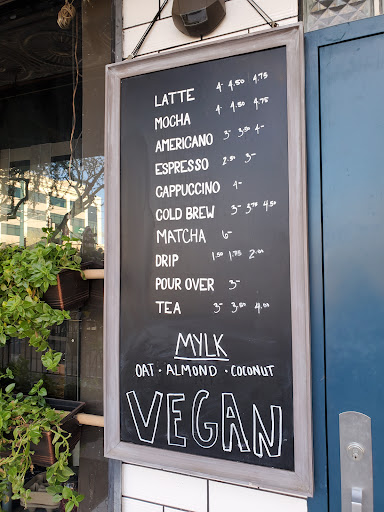 LATTE 4- 4.50 4.75
MOCHA 4- 4.50 4.75
AMERICANO 3- 3.50 4-
ESPRESSO 2.50 3-
CAPPUCCINO 4-
COLD BREW 3- 3.75 4.50
MATCHA 6-
DRIP 1.50 1.75 2.00
POUR OVER 3-
TEA 3- 3.50 4.00
MYLK
OAT • ALMOND • COCONUT
VEGAN